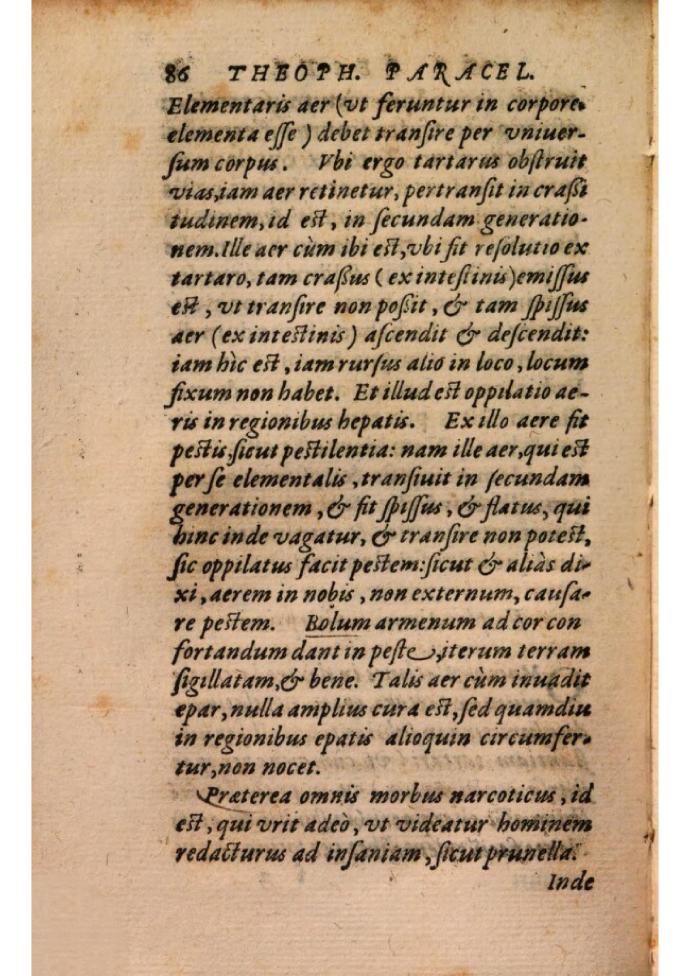 86 THEOPH. PARACEL.
Elementaris aer (vt feruntur in corpore
elementa eſſe ) debet tranſire per vniuer-
ſum corpus. Vbi ergo tartarus obſtruit
vias, iam aer retinetur, pertranſit in craßi
tudinem, id eſt, in ſecundam generatio-
nem. Ille aer cùm ibi eſt, vbi fit reſolutio ex
tartaro, tam craßus ( ex inteſtinis) emiſſus
eſt, vt tranſire non poßit, & tam ſpiſſus
aer (ex inteſtinis) aſcendit & deſcendit:
iam hìc eſt, iam rurſus alio in loco, locum
fixum non habet. Et illud eſt oppilatio ae-
ris in regionibus hepatis. Ex illo aere fit
peſtis, ſicut peſtilentia: nam ille aer, qui eſt
per ſe elementalis, tranſiuit in ſecundam
generationem, & fit ſpiſſus, & flatus, qui
hinc inde vagatur, & tranſire non poteſt,
ſic oppilatus facit peſtem: ſicut & aliàs di-
xi, aerem in nobis, non externum, cauſa-
re peſtem. Bolum armenum ad cor con
fortandum dant in peſte, iterum terram
ſigillatam, & bene. Talis aer cùm inuadit
epar, nulla amplius cura eſt, ſed quamdiu
in regionibus epatis alioquin circumfer-
tur, non nocet.
Præterea omnis morbus narcoticus, id
eſt, qui vrit adeò, vt videatur hominem
redacturus ad inſaniam, ſicut prunella.
Inde